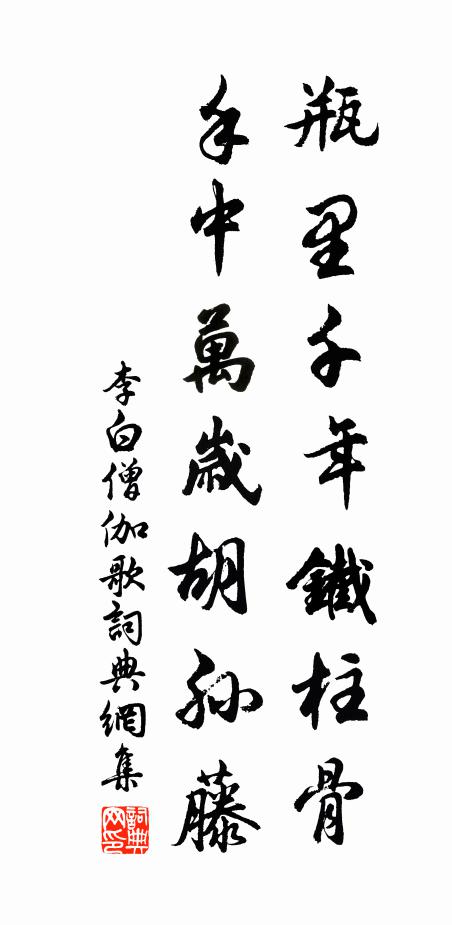 瓶里千年鐵柱骨
手中萬歲胡孫藤
李白僧伽歌詞典網集
詞典
网印